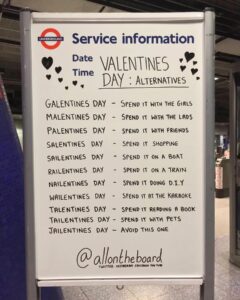 UNDERGROUND
Service information
Date
Time
VALENTINES
DAY : ALTERNATIVES
GALENTINES DAY - SPEND IT WITH THE GIRLS
MALENTINES DAY - SPEND IT WITH THE LADS
PALENTINES DAY - SPEND IT WITH FRIENDS
SALENTINES DAY - SPEND IT SHOPPING
SAILENTINES DAY - SPEND IT ON A BOAT
RAILENTINES DAY - SPEND IT ON A TRAIN
NAILENTINES DAY - SPEND IT DOING D.I.Y
WAILENTINES DAY - SPEND IT AT THE KARAOKE
TALENTINES DAY - SPEND IT READING A BOOK
TAILENTINES DAY - SPEND IT WITH PETS
JAILENTINES DAY - AVOID THIS ONE
@allontheboard
TWITTER INSTAGRAM FACEBOOK